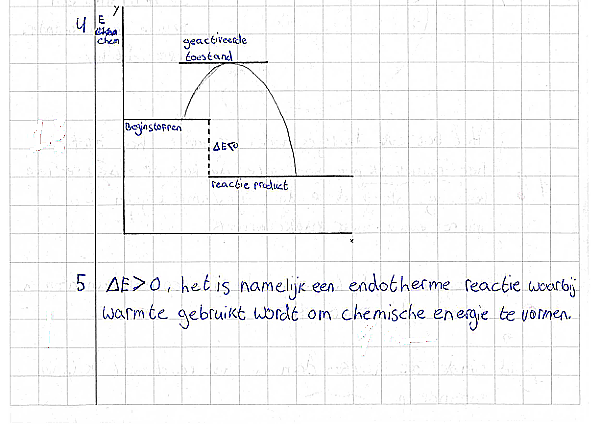 y
4
E
chem
geactiveerde
toestand
Beginstoffen
ΔE<0
reactie product
x
5 ΔE>0, het is namelijk een endotherme reactie waarbij
warmte gebruikt wordt om chemische energie te vormen.